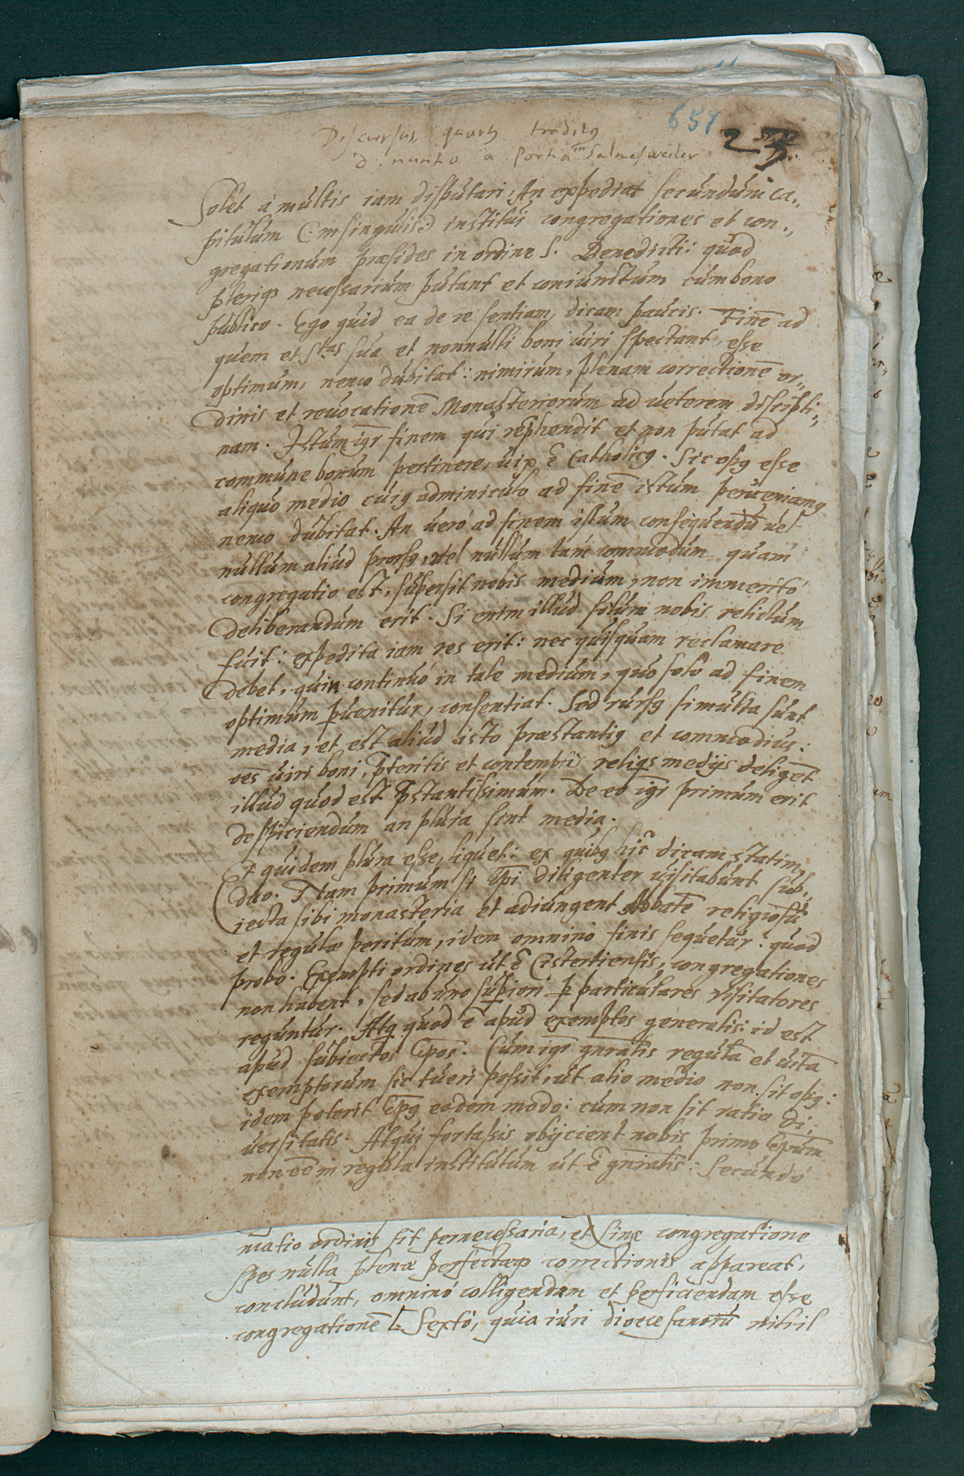 657
23
Discursus quartus traditus
D. nuntio à Portia in Salmesweiler
Solet à multis iam disputari, An expediat secundum ca„
pitulum C in singulis institui congregationes et con„
gregationum præsides in ordine S. Benedicti: quod
pleriq necessarium putant et coniunctum cum bono
publico. Ego quid ea de re sentiam, dicam paucis. Finē ad
quem et Sᵗᵃˢ sua et nonnulli boni uiri spectant, esse
optimum, nemo dubitat: nimirum, plenam correctionē or„
dinis et reuocationē Monasteriorum ad ueterem discipli„
nam. Istum igr finem qui rephendit et non putat ad
commune bonum pertinere, uix ē Catholicq. Sic opq esse
aliquo medio cuiq adminiculo ad finē istum perueniamq
nemo dubitat. An uero ad finem istum consequendū uel
nullum aliud prorsq, uel nullum tam commodum quam
congregatio est, supersit nobis medium, non immerito
deliberandum erit. Si enim illud solum nobis relictum
fuit: expedita iam res erit: nec quisquam reclamare
debet, quin continuo in tale medium, quo solo ad finem
optimum puenitur, consentiat. Sed rursq si multa sunt
media, et est aliud isto præstantiq et commodius:
oēs uiri boni, pteritis et contemptis reliqs medijs deligēt
illud quod est pstantissimum. De eo igr primum erit
despiciendum an plura sint media.
Et quidem plura esse, liquet: ex quibq his dicam statim
duo. Nam primum si Epi diligenter uisitabunt sub„
iecta sibi monasteria et adiungent Abbatē religiosū
et regulæ peritum, idem omnino finis sequetur: quod
probo. Exempti ordines ut ē Cistertiensis, congregationes
non habent, sed ab uno supiori p particulares visitatores
reguntur. Atq quod ē apud exemptos generalis: id est
apud subiectos Epos. Cum igr gnralis regulā et uitā
exemptorum sic tueri possit, ut alio medio non sit opq:
idem poterit Epq eodem modo: cum non sit ratio di„
uersitatis. Atqui fortassis obijcient nobis primo Epum
non eē in regula institutum ut ē gnralis: Secundo
matio ordinis sit pernecessaria, et sine congregatione
spes nulla plenæ perfectæq correctionis appareat,
concludunt, omnino colligendam et perficiendam esse
congregationē. Sexto, quia iuri dioecesanorū nihil